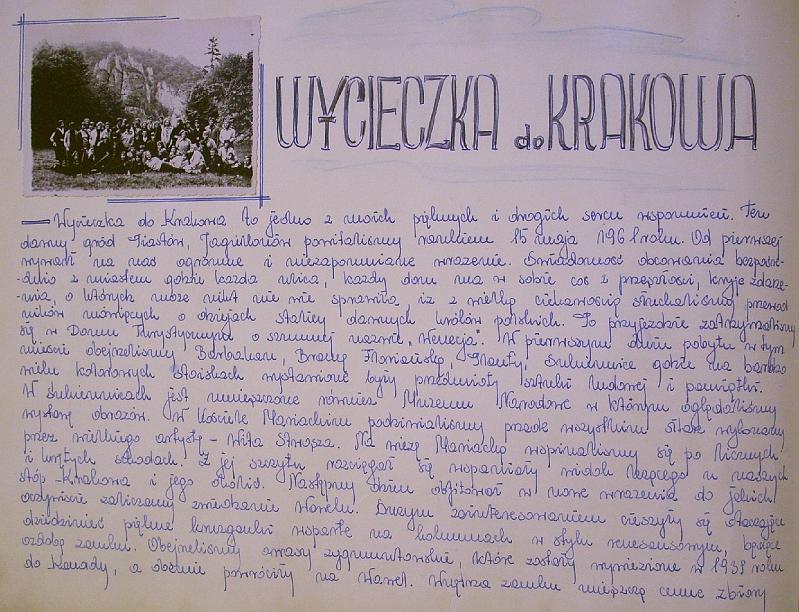 WYCIECZKA do KRAKOWA
— Wycieczka do Krakowa to jedno z moich pięknych i drogich sercu wspomnień. Ten
dawny gród Piastów, Jagiellonów powitaliśmy rankiem 15 maja 1961 roku. Od pierwszej
wywarł na nas ogromne i niezapomniane wrażenie. Świadomość obcowania bezpośre-
-dnio z miastem gdzie każda ulica, każdy dom ma w sobie coś z przeszłości, kryje zdarze-
-nia, o których może nikt nie wie sprawiła, iż z wielką ciekawością słuchaliśmy przewod
ników mówiących o dziejach stolicy dawnych królów polskich. Po przyjeździe zatrzymaliśmy
się w Domu Turystycznym o szumnej nazwie „Wenecja". W pierwszym dniu pobytu w tym
mieście obejrzeliśmy Barbakan, Bramę Floriańską, Planty, Sukiennice gdzie na bardzo
wielu kolorowych stoiskach wystawione były przedmioty sztuki ludowej i pamiątki.
W Sukiennicach jest umieszczone również Muzeum Narodowe w którym oglądaliśmy
wystawę obrazów. W Kościele Mariackim podziwialiśmy przede wszystkim ołtarz wykonany
przez wielkiego artystę – Wita Stwosza. Na wieżę Mariacką wspinaliśmy się po licznych
i krętych schodach. Z jej szczytu rozciągał się wspaniały widok leżącego u naszych
stóp – Krakowa i jego okolic. Następny dzień obfitował w nowe wrażenia do jakich
oczywiście zaliczamy zwiedzanie Wawelu. Dużym zainteresowaniem cieszyły się otaczające
dziedziniec piękne krużganki wsparte na kolumnach w stylu renesansowym, będące
ozdobą zamku. Obejrzeliśmy arrasy zygmuntowskie, które zostały wywiezione w 1939 roku
do Kanady, a obecnie powróciły na Wawel. Wnętrza zamku mieszczą cenne zbiory